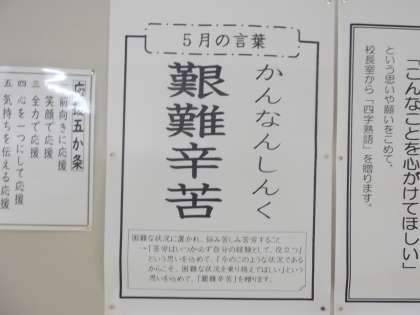 「こんなことを心がけてほしい」
という思いや願いをこめて、
校長室から「四字熟語」を贈ります。
5月の言葉
かんなんしんく
艱難辛苦
困難な状況に置かれ、悩み苦しみ苦労すること
→「苦労はいつか必ず自分の経験として、役立つ」
という思いを込めて、「今のこのような状況である
からこそ、困難な状況を乗り越えてほしい」という
思いを込めて、「艱難辛苦」を贈ります。
応援五か条
一 前向きに応援
二 笑顔で応援
三 全力で応援
四 心を一つにして応援
五 気持ちを伝える応援